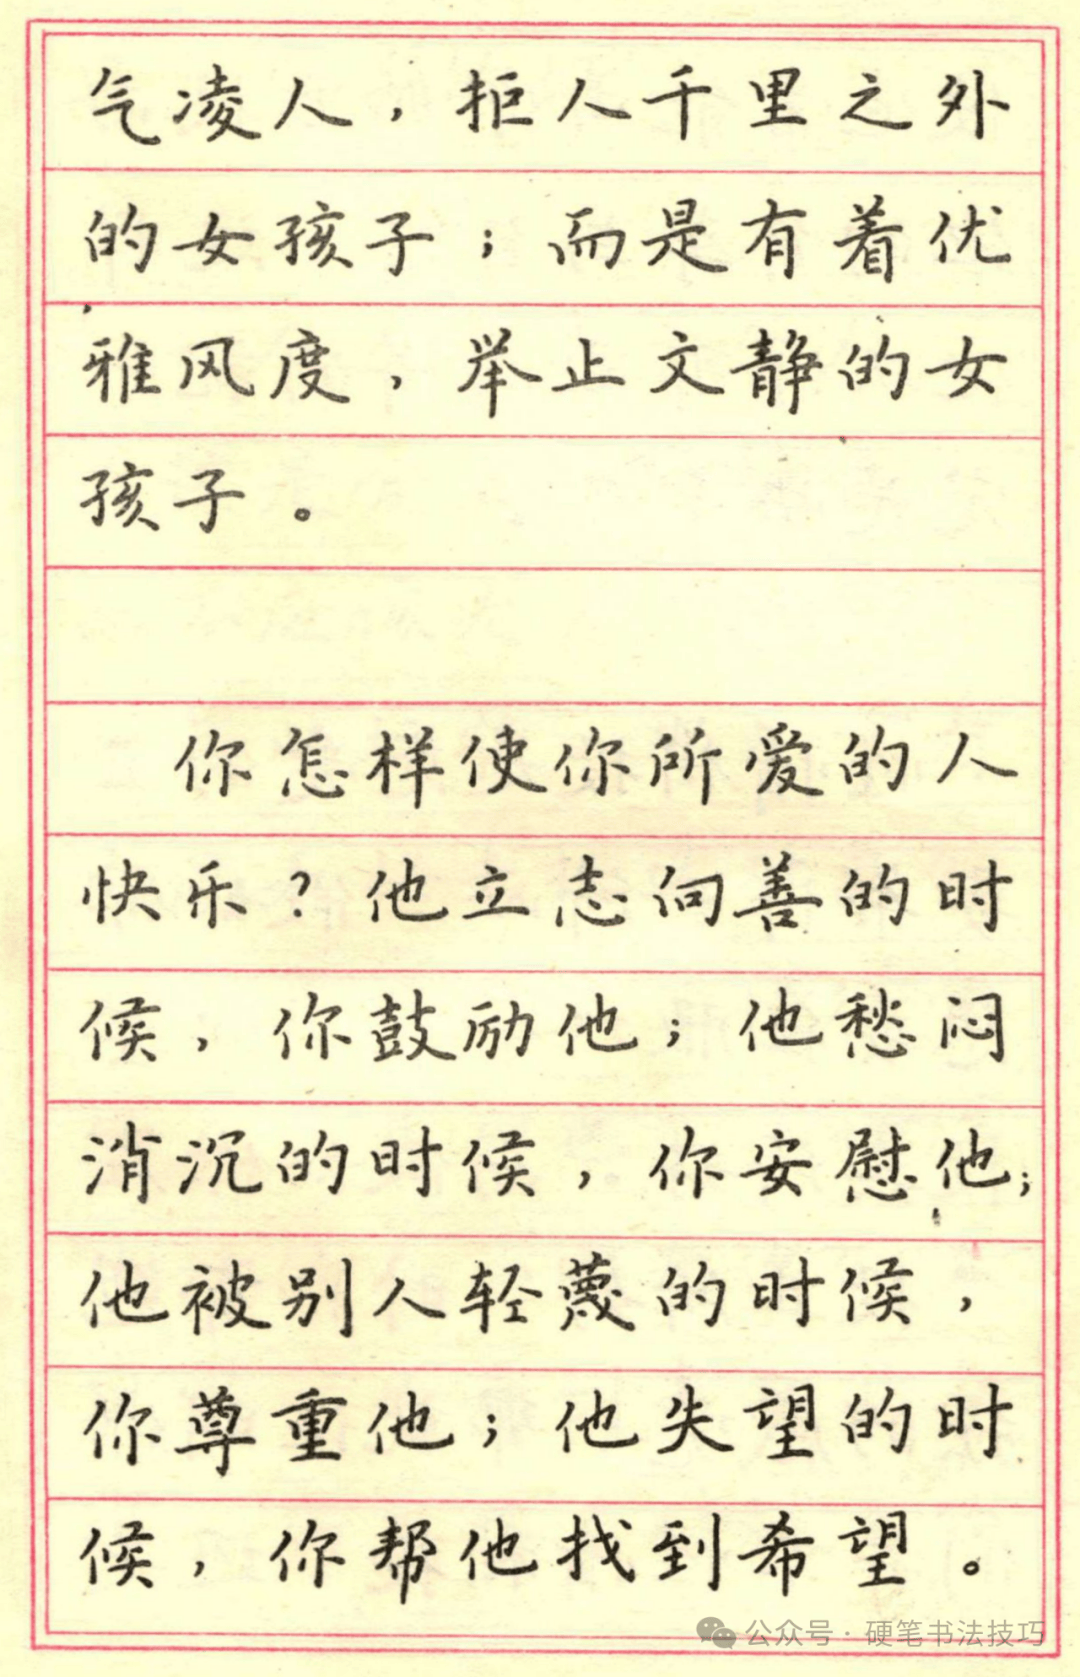 气凌人，拒人千里之外
的女孩子；而是有着优
雅风度，举止文静的女
孩子。
你怎样使你所爱的人
快乐？他立志向善的时
候，你鼓励他；他愁闷
消沉的时候，你安慰他；
他被别人轻蔑的时候，
你尊重他；他失望的时
候，你帮他找到希望。
公众号·硬笔书法技巧